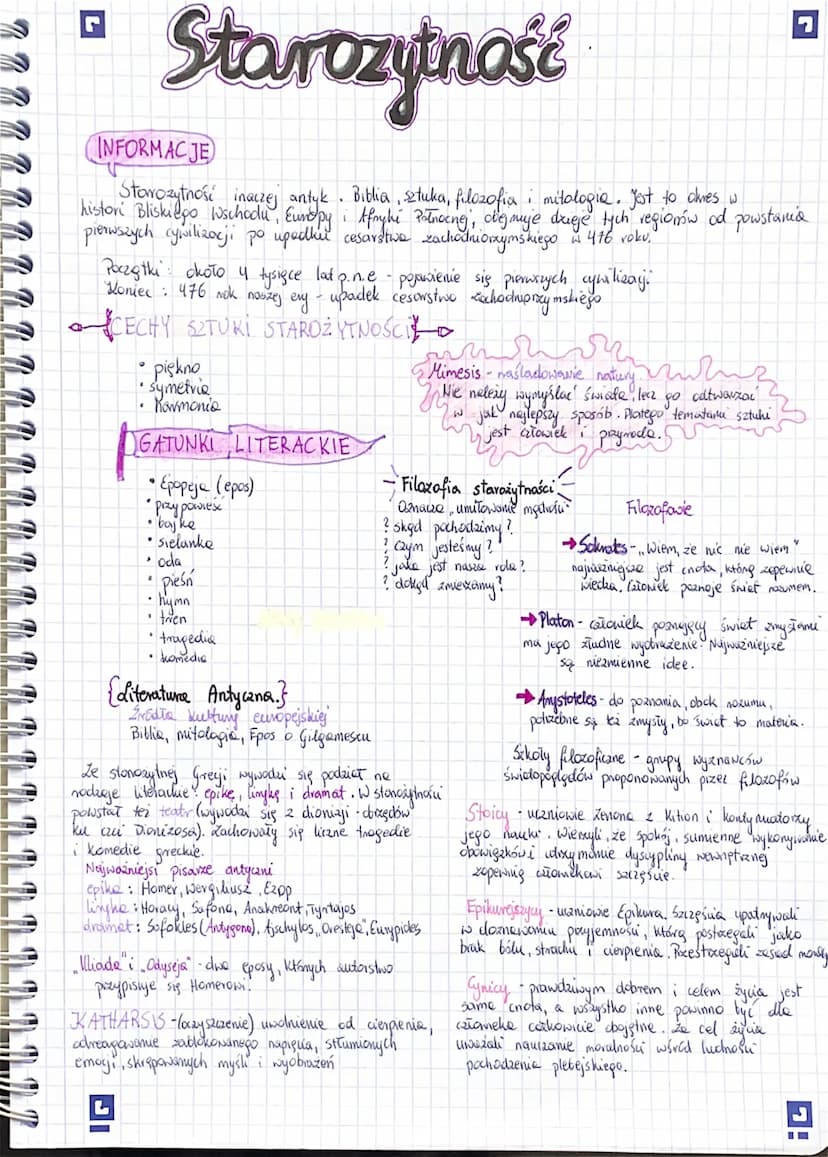 Starożytność
INFORMACJE
Starożytność inaczej antyk. Biblia, sztuka, filozofia i mitologia. Jest to okres w
histori Bliskiego Wschodu, Europy i Afryki Północnej, obejmuje dzieje tych regionów od powstania
pierwszych cywilizacji po upadku cesarstwa zachodniorzymskiego w 476 roku.
Początki: około 4 tysiące lat p.n.e - pojawienie się pierwszych cywilizacji
Koniec: 476 rok naszej ery - upadek cesarstwa zachodniorzymskiego
CECHY SZTUKI STAROŻYTNOŚCI
• piękno
• symetria
• harmonia
Mimesis - naśladowanie natury
Nie należy wymyślać świata, lecz go odtwarzać
w jak najlepszy sposób. Dlatego tematami sztuki
jest człowiek i przyroda.
GATUNKI LITERACKIE
• Epopeja (epos)
• przypowieść
• bajka
• sielanka
• oda
• pieśń
• hymn
• tren
• tragedia
• komedia
Filozofia starożytności
Oznacza "umiłowanie mądrości"
? skąd pochodzimy?
? czym jesteśmy?
? jaka jest nasza rola?
? dokąd zmierzamy?
Filozofowie
→ Sokrates - "Wiem, że nic nie wiem"
najważniejsza jest cnota, którą zapewnia
wiedza. Człowiek poznaje świat rozumem.
→ Platon - człowiek poznający świat zmysłami
ma jego złudne wyobrażenie. Najważniejsze
są niezmienne idee.
→ Arystoteles - do poznania, obok rozumu,
potrzebne są też zmysły, bo świat to materia.
Szkoły filozoficzne - grupy wyznawców
światopoglądów proponowanych przez filozofów
Stoicy - uczniowie Zenona z Kition i kontynuatorzy
jego nauki. Wierzyli, że spokój, sumienne wykonywanie
obowiązków i utrzymanie dyscypliny wewnętrznej
zapewnią człowiekowi szczęście.
Epikurejszycy - uczniowie Epikura. Szczęścia upatrywali
w doznawaniu przyjemności, którą postrzegali jako
brak bólu, strachu i cierpienia. Przestrzegali zasad
Cynicy - prawdziwym dobrem i celem życia jest
sama cnota, a wszystko inne powinno być dla
człowieka całkowicie obojętne. Za cel życia
uważali nauczanie moralności wśród ludności
pochodzenia plebejskiego.
{Literatura Antyczna.}
Źródła kultury europejskiej
Biblia, mitologia, Epos o Gilgameszu
Ze starożytnej Grecji wywodzi się podział na
rodzaje literackie: epikę, lirykę i dramat. W starożytności
powstał też teatr (wywodzi się z dionizji - obrzędów
ku czci Dionizosa). Zachowały się liczne tragedie
i komedie greckie.
Najważniejsi pisarze antyczni
epika: Homer, Wergiliusz, Ezop
liryka: Horacy, Safona, Anakreont, Tyrtajos
dramat: Sofokles (Antygona), Ajschylos "Oresteja", Eurypides
"Iliada" i "Odyseja" - dwa eposy, których autorstwo
przypisuje się Homerowi.
KATHARSIS - (oczyszczenie) uwolnienie od cierpienia,
odreagowanie zablokowanego napięcia, stłumionych
emocji, skrępowanych myśli i wyobrażeń